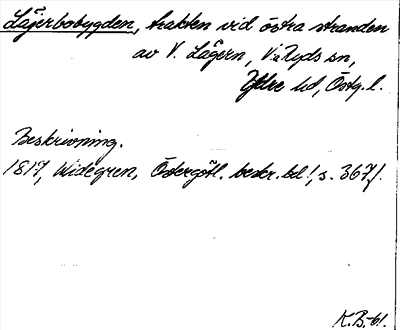 Lägerbobygden, trakten vid östra stranden
av V. Lägern, V:a Ryds sn,
Ydre hd, Östg. l.
Beskrivning.
1817, Widegren, Östergötl. beskr. bd 1, s. 367 f.
K.B.-61.